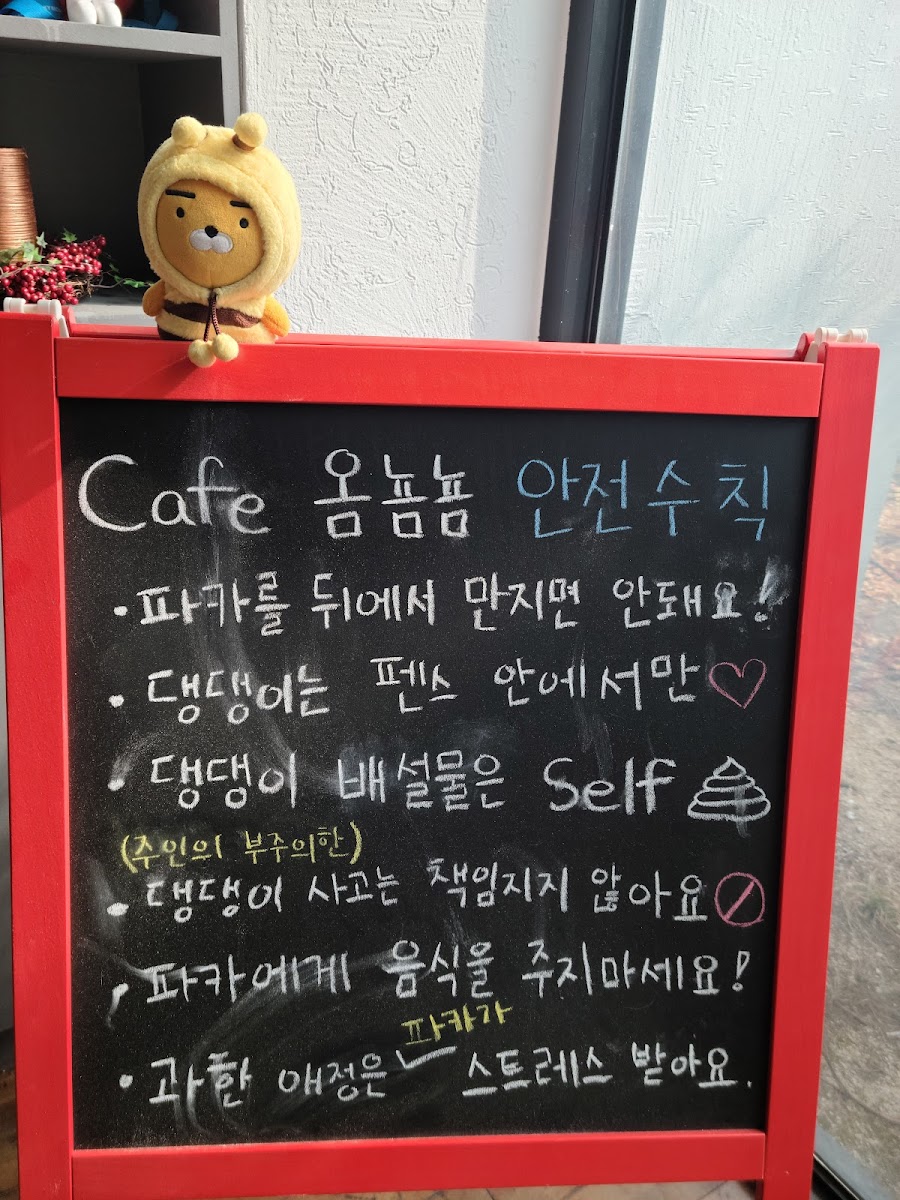 Cafe 옴뇸뇸 안전수칙
· 파카를 뒤에서 만지면 안돼요!
· 댕댕이는 펜스 안에서만♡
· 댕댕이 배설물은 Self
(주인의 부주의한)
· 댕댕이 사고는 책임지지 않아요
· 파카에게 음식을 주지마세요!
파카가
· 과한 애정은 스트레스 받아요.